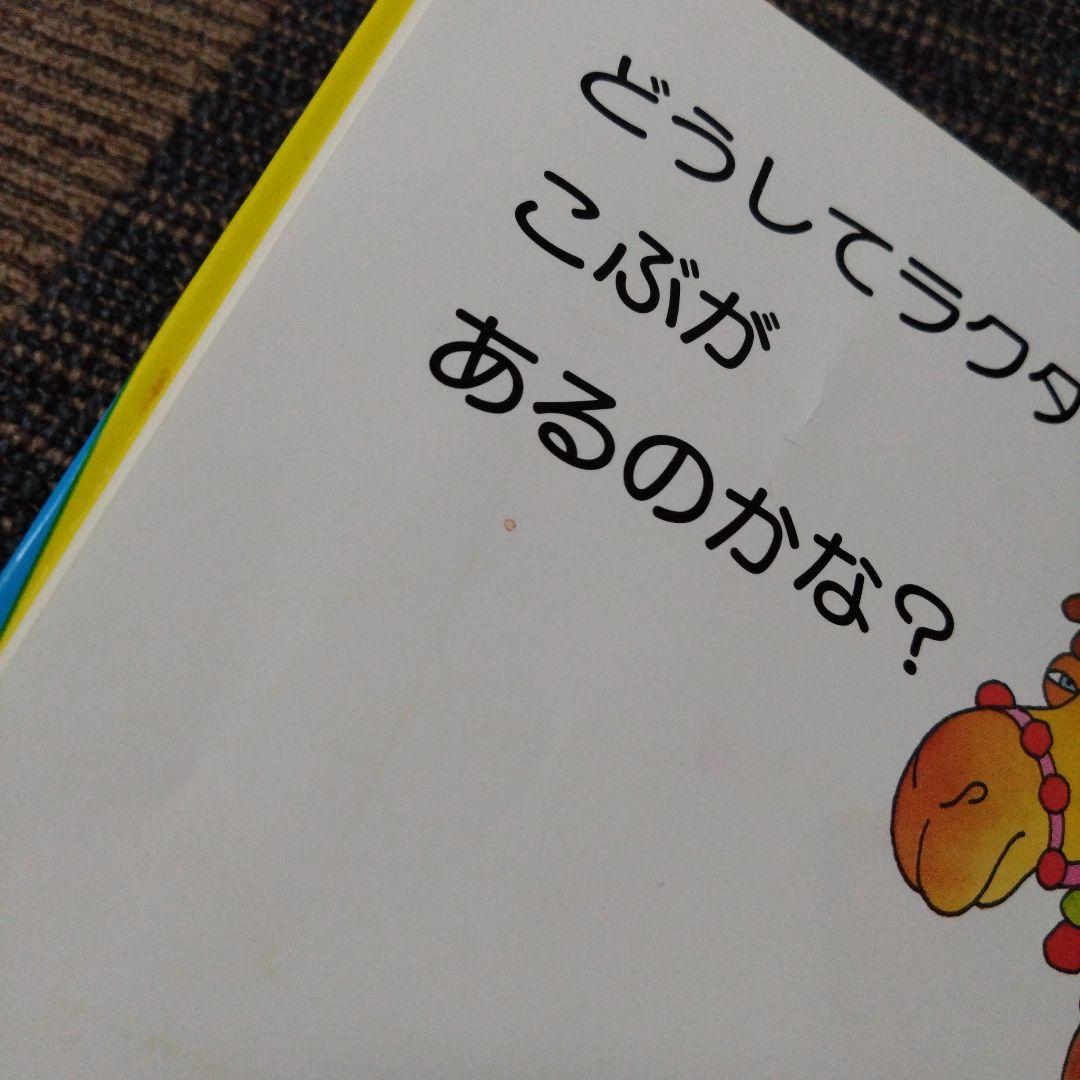 どうしてラクダ
こぶが
あるのかな?